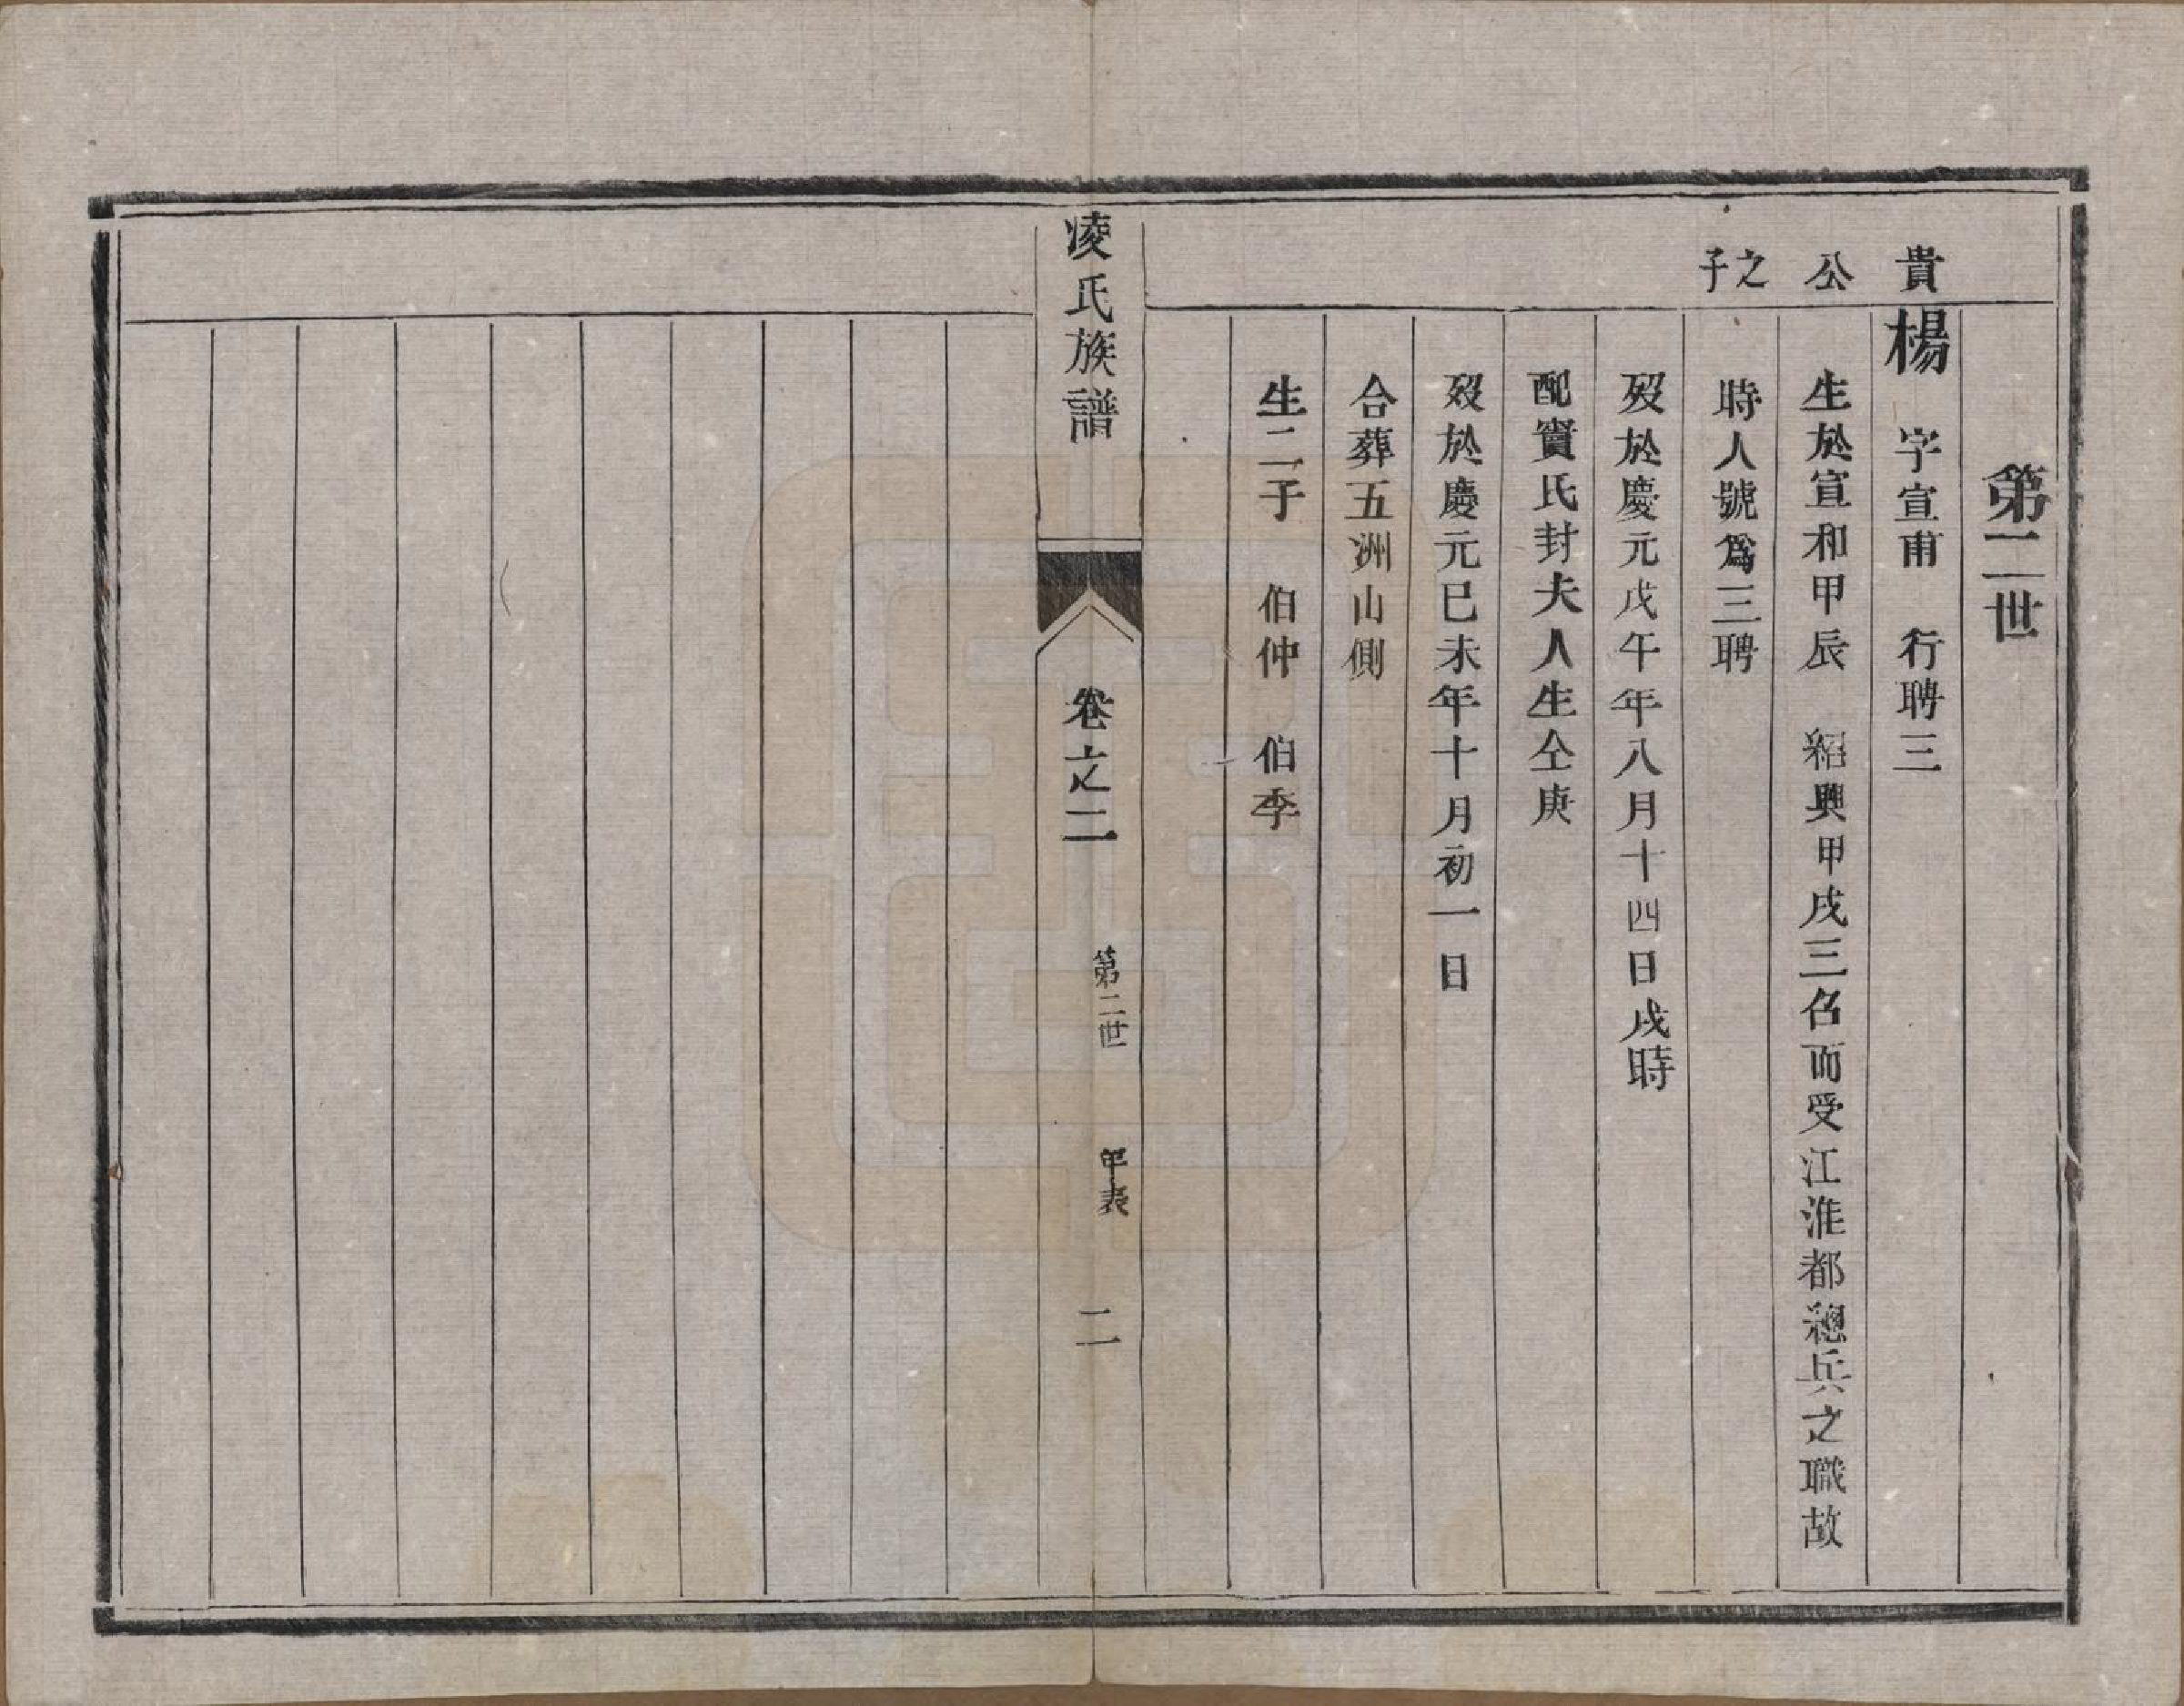 第二世
貴公之子
楊　字宣甫　行聘三
生於宣和甲辰　紹興甲戌三召而受江淮都總兵之職故
時人號爲三聘
歿於慶元戊午年八月十四日戌時
配竇氏封夫人生仝庚
歿於慶元己未年十月初一日
合葬五洲山側
生二子　伯仲　伯季
凌氏族譜　卷之二　第二世　年表　二